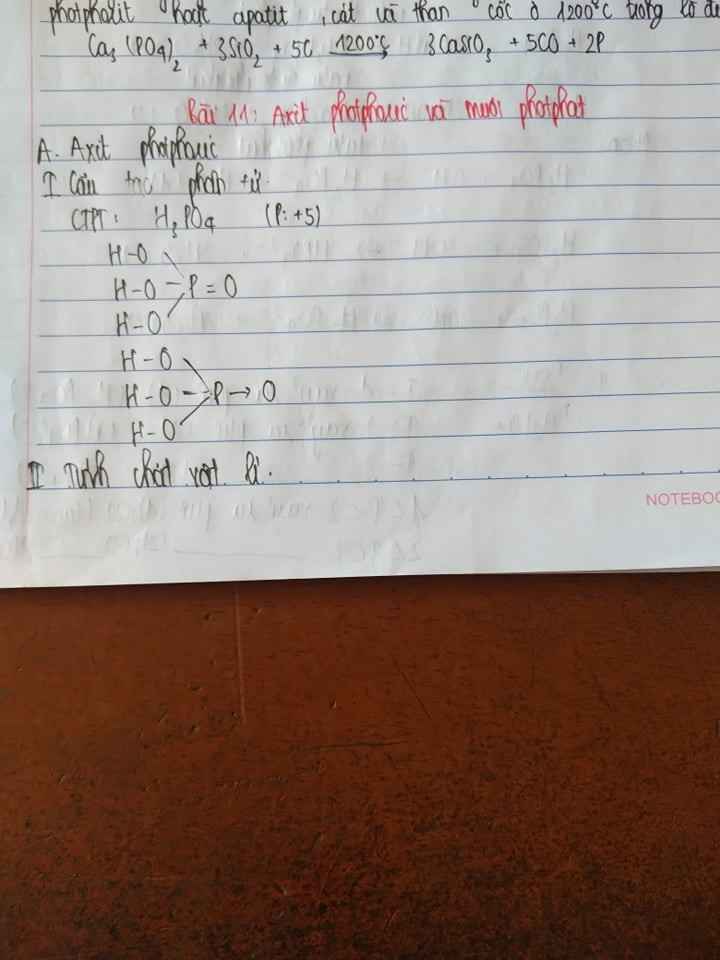 photphorit hoặc apatit, cát và than cốc ở 1200°C trong lò
Ca3(PO4)2 + 3SiO2 + 5C 1200°C 3CaSiO3 + 5CO + 2P
Bài 11: Axit photphoric và muối photphat
A. Axit photphoric
I Cấu tạo phân tử.
CTPT: H3PO4 (P: +5)
H-O
H-O - P = O
H-O
H-O
H-O - P → O
H-O
II Tính chất vật lí.
NOTEBOO